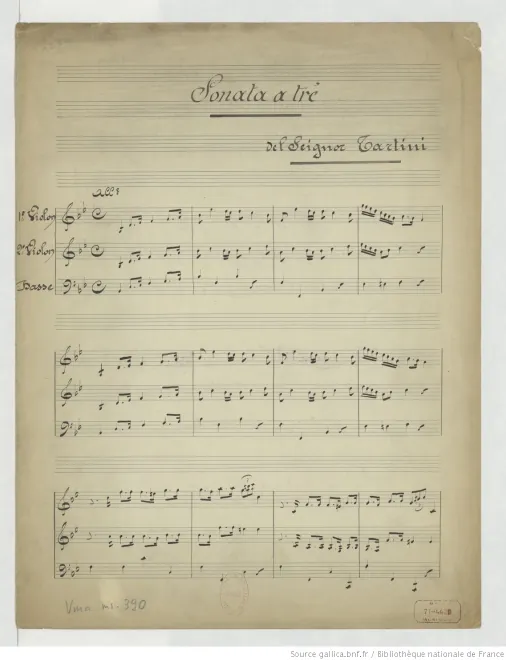 Sonata a trè
del Seignor Tartini
all°
1er Violon
2e Violon
Basse
Vma ms. 390
Source gallica.bnf.fr / Bibliothèque nationale de France